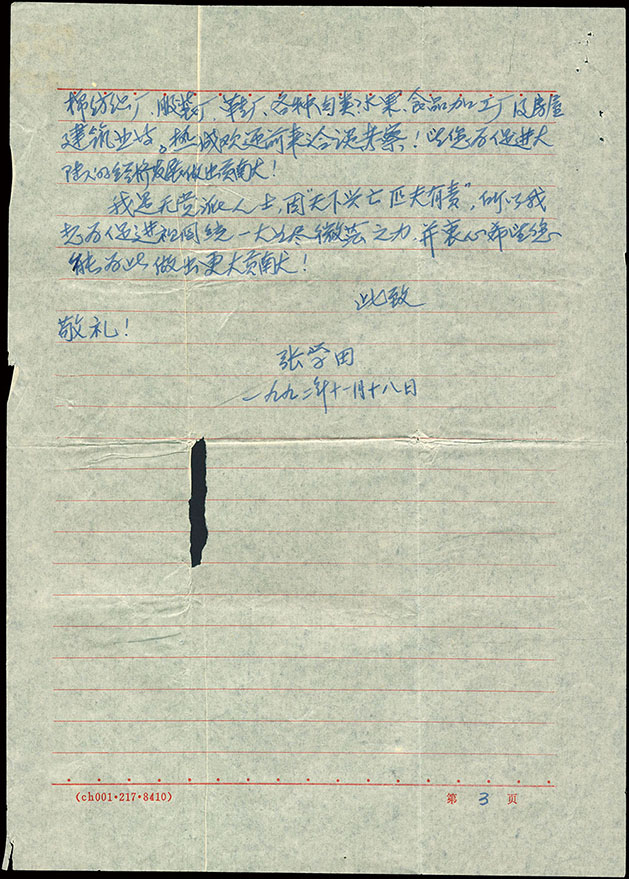 棉纺织厂、服装厂、鞋厂、各种肉类、水果、食品加工厂及房屋
建筑业等。热诚欢迎前来洽谈考察！望您为促进大
陆的经济发展做出贡献！
我是无党派人士，因“天下兴亡匹夫有责”，所以我
想为促进祖国统一大业尽微薄之力，并衷心希望您
能为此做出更大贡献！
此致
敬礼！
张学田
一九九二年十一月十八日
(ch001·217·8410)
第 3 页